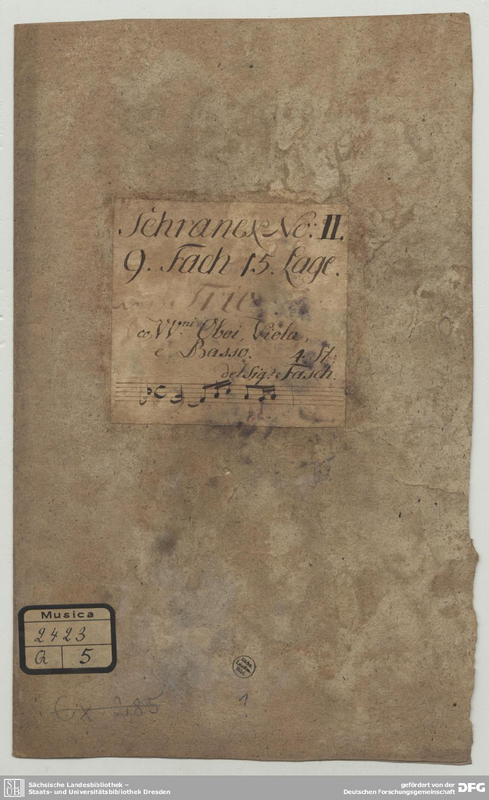 Schranck No: II.
9. Fach 15. Lage.
Trio
co VVni Oboi, Viola,
e Basso. 4. St:
del Sigr: Fasch.
Musica
2423
Q 5
Cx 285
1
SLUB
Sächsische Landesbibliothek –
Staats- und Universitätsbibliothek Dresden
gefördert von der
Deutschen Forschungsgemeinschaft
DFG